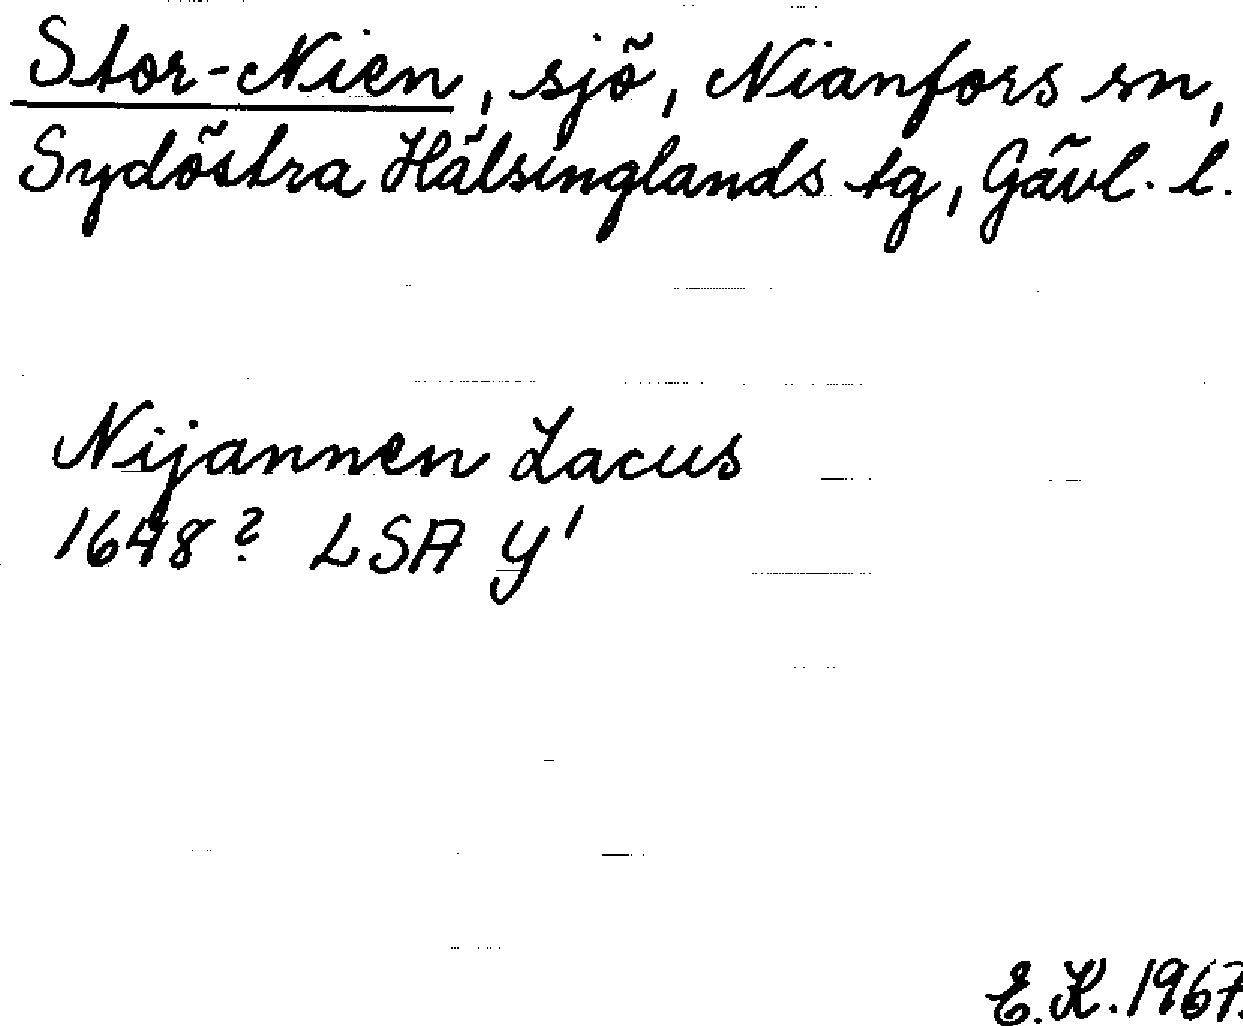 Stor-Nien, sjö, Nianfors sn,
Sydöstra Hälsinglands tg, Gävl. l.
Nijannen Lacus
1648? LSA Y'
E.K. 1967.